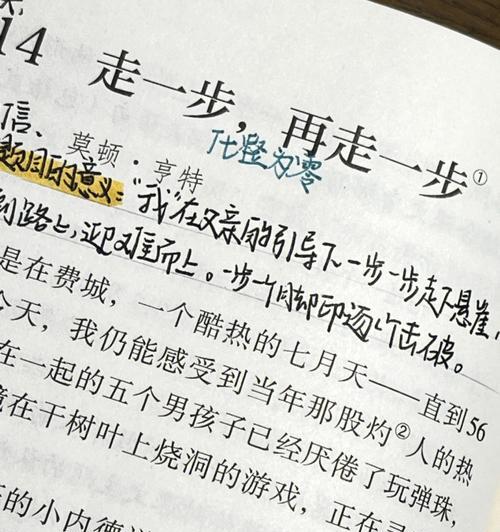 14 走一步，再走一步①
化整为零
信、莫顿·亨特
题目的意义："我"在父亲的引导下一步一步走下悬崖，
到路上，迎难而上。一步一个脚印逐个击破。
是在费城，一个酷热的七月天——直到56
今天，我仍能感受到当年那股灼②人的热
在一起的五个男孩子已经厌倦了玩弹珠，
在干树叶上烧洞的游戏，正在寻
的小内德